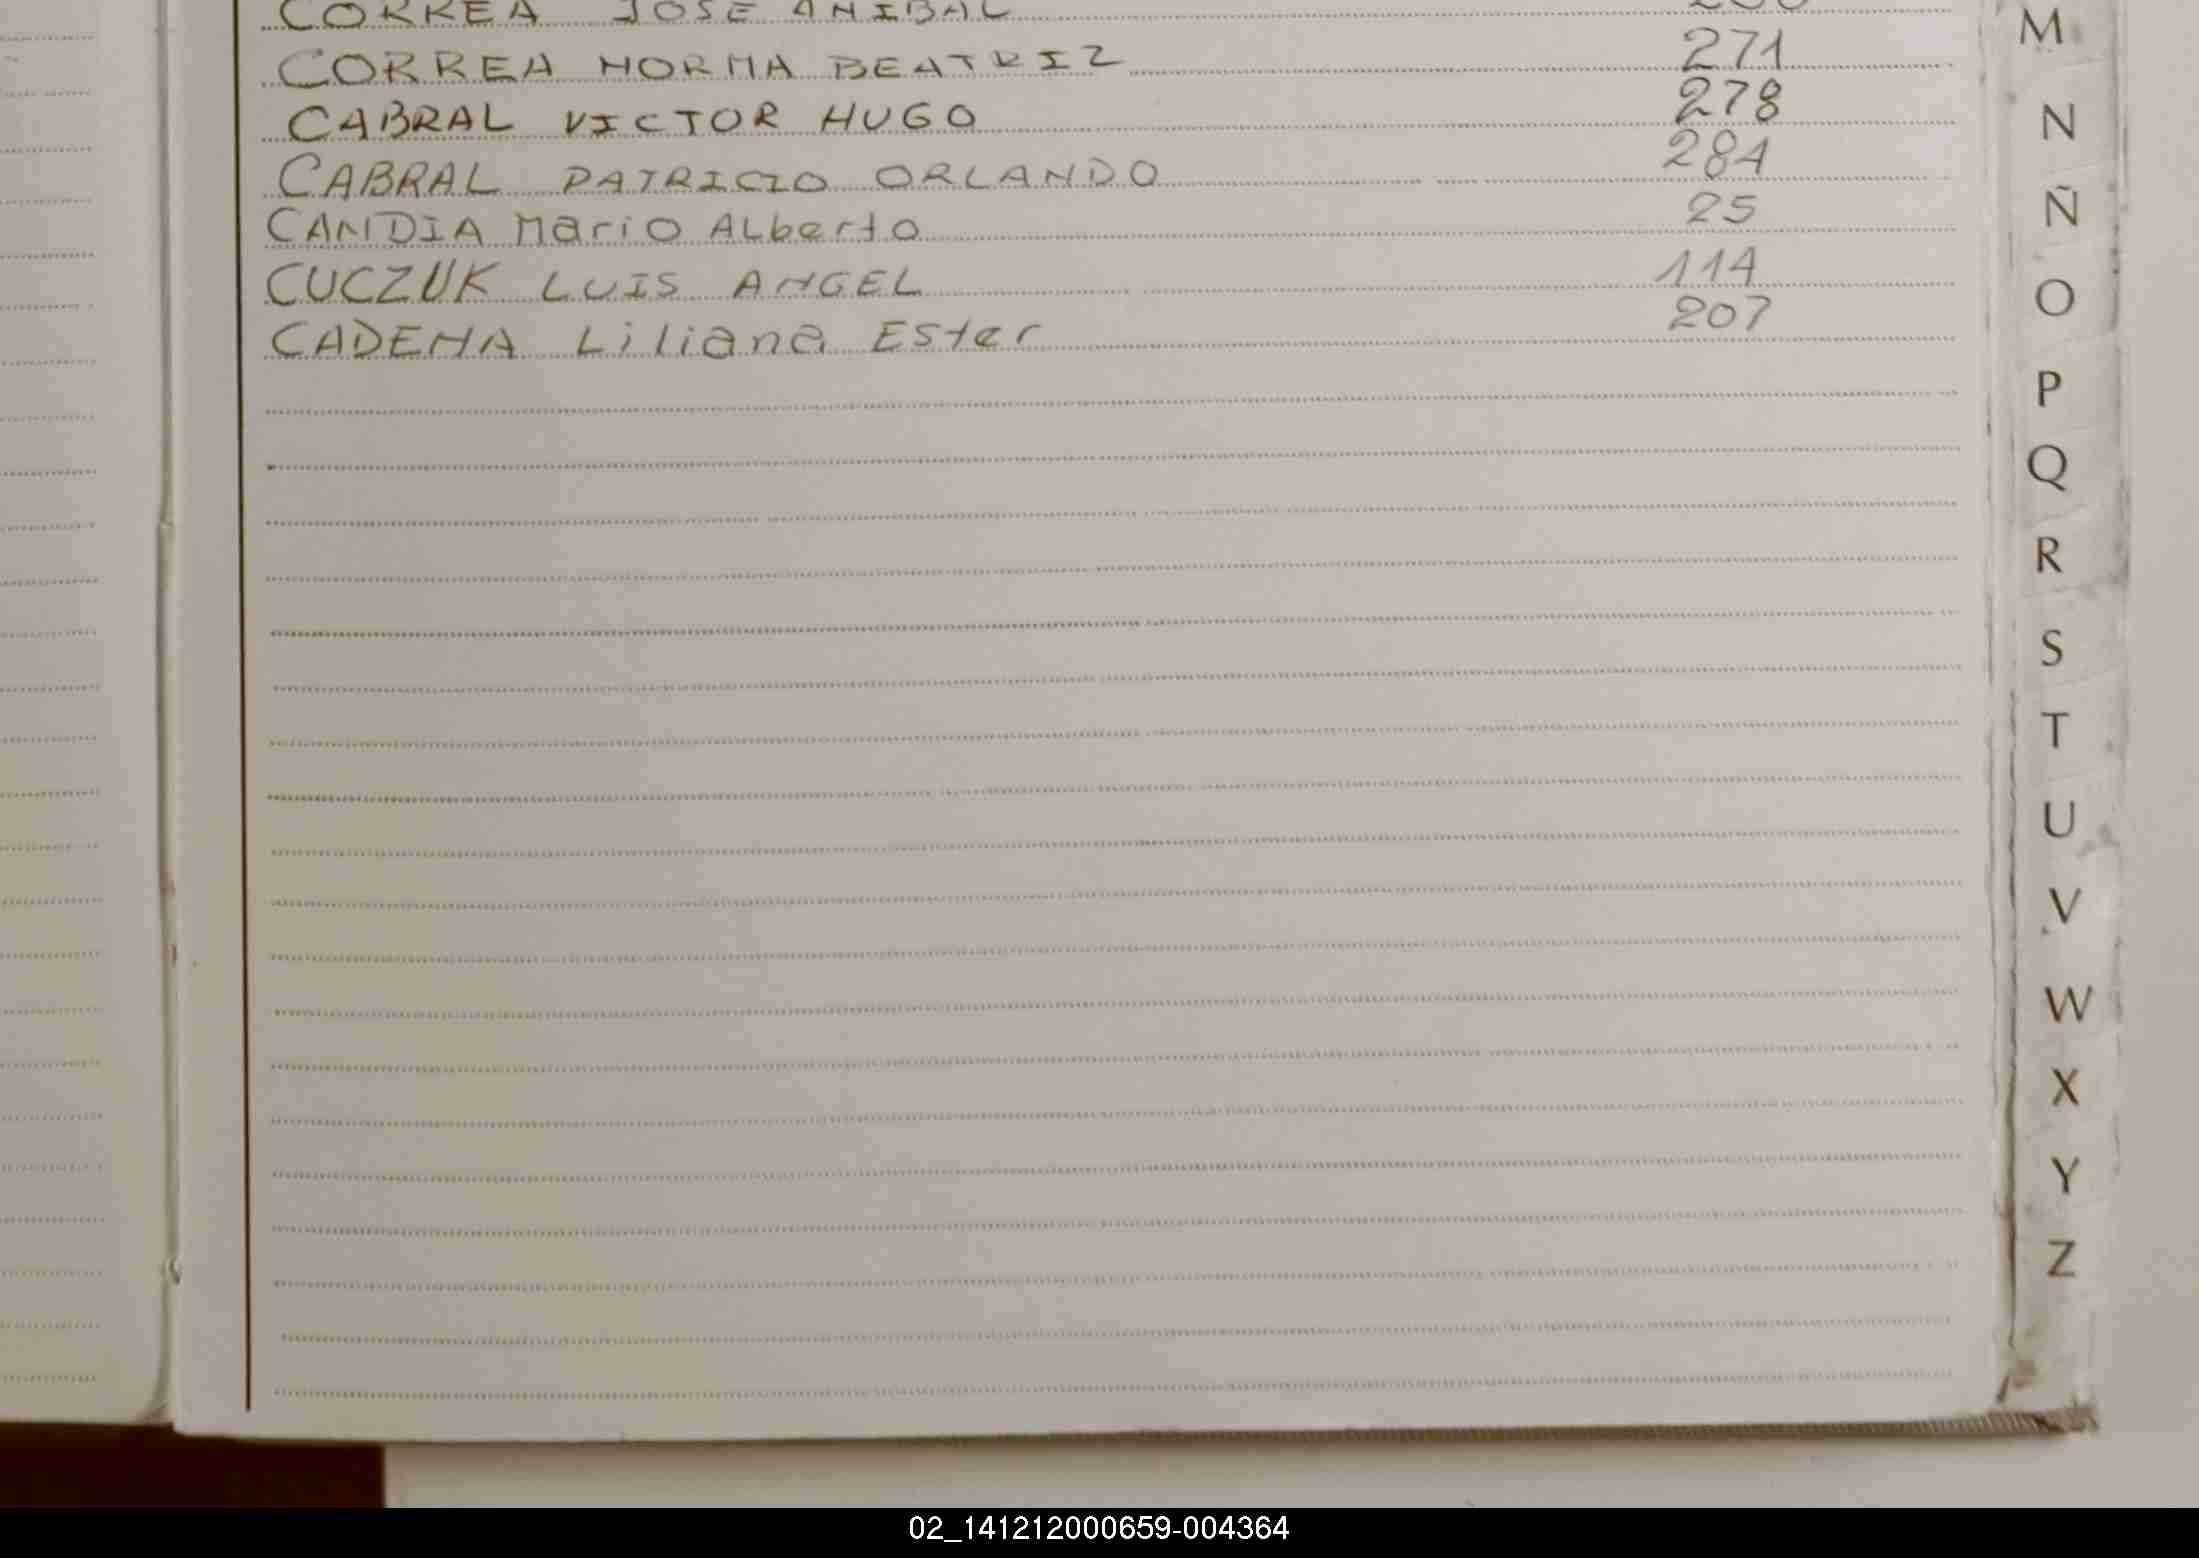 CORREA JOSE ANIBAL
CORREA NORMA BEATRIZ 271
CABRAL VICTOR HUGO 278
CABRAL PATRICIO ORLANDO 284
CANDIA Mario ALberto 25
CUCZUK LUIS ANGEL 114
CADENA Liliana Ester 207
M
N
Ñ
O
P
Q
R
S
T
U
V
W
X
Y
Z
02_141212000659-004364